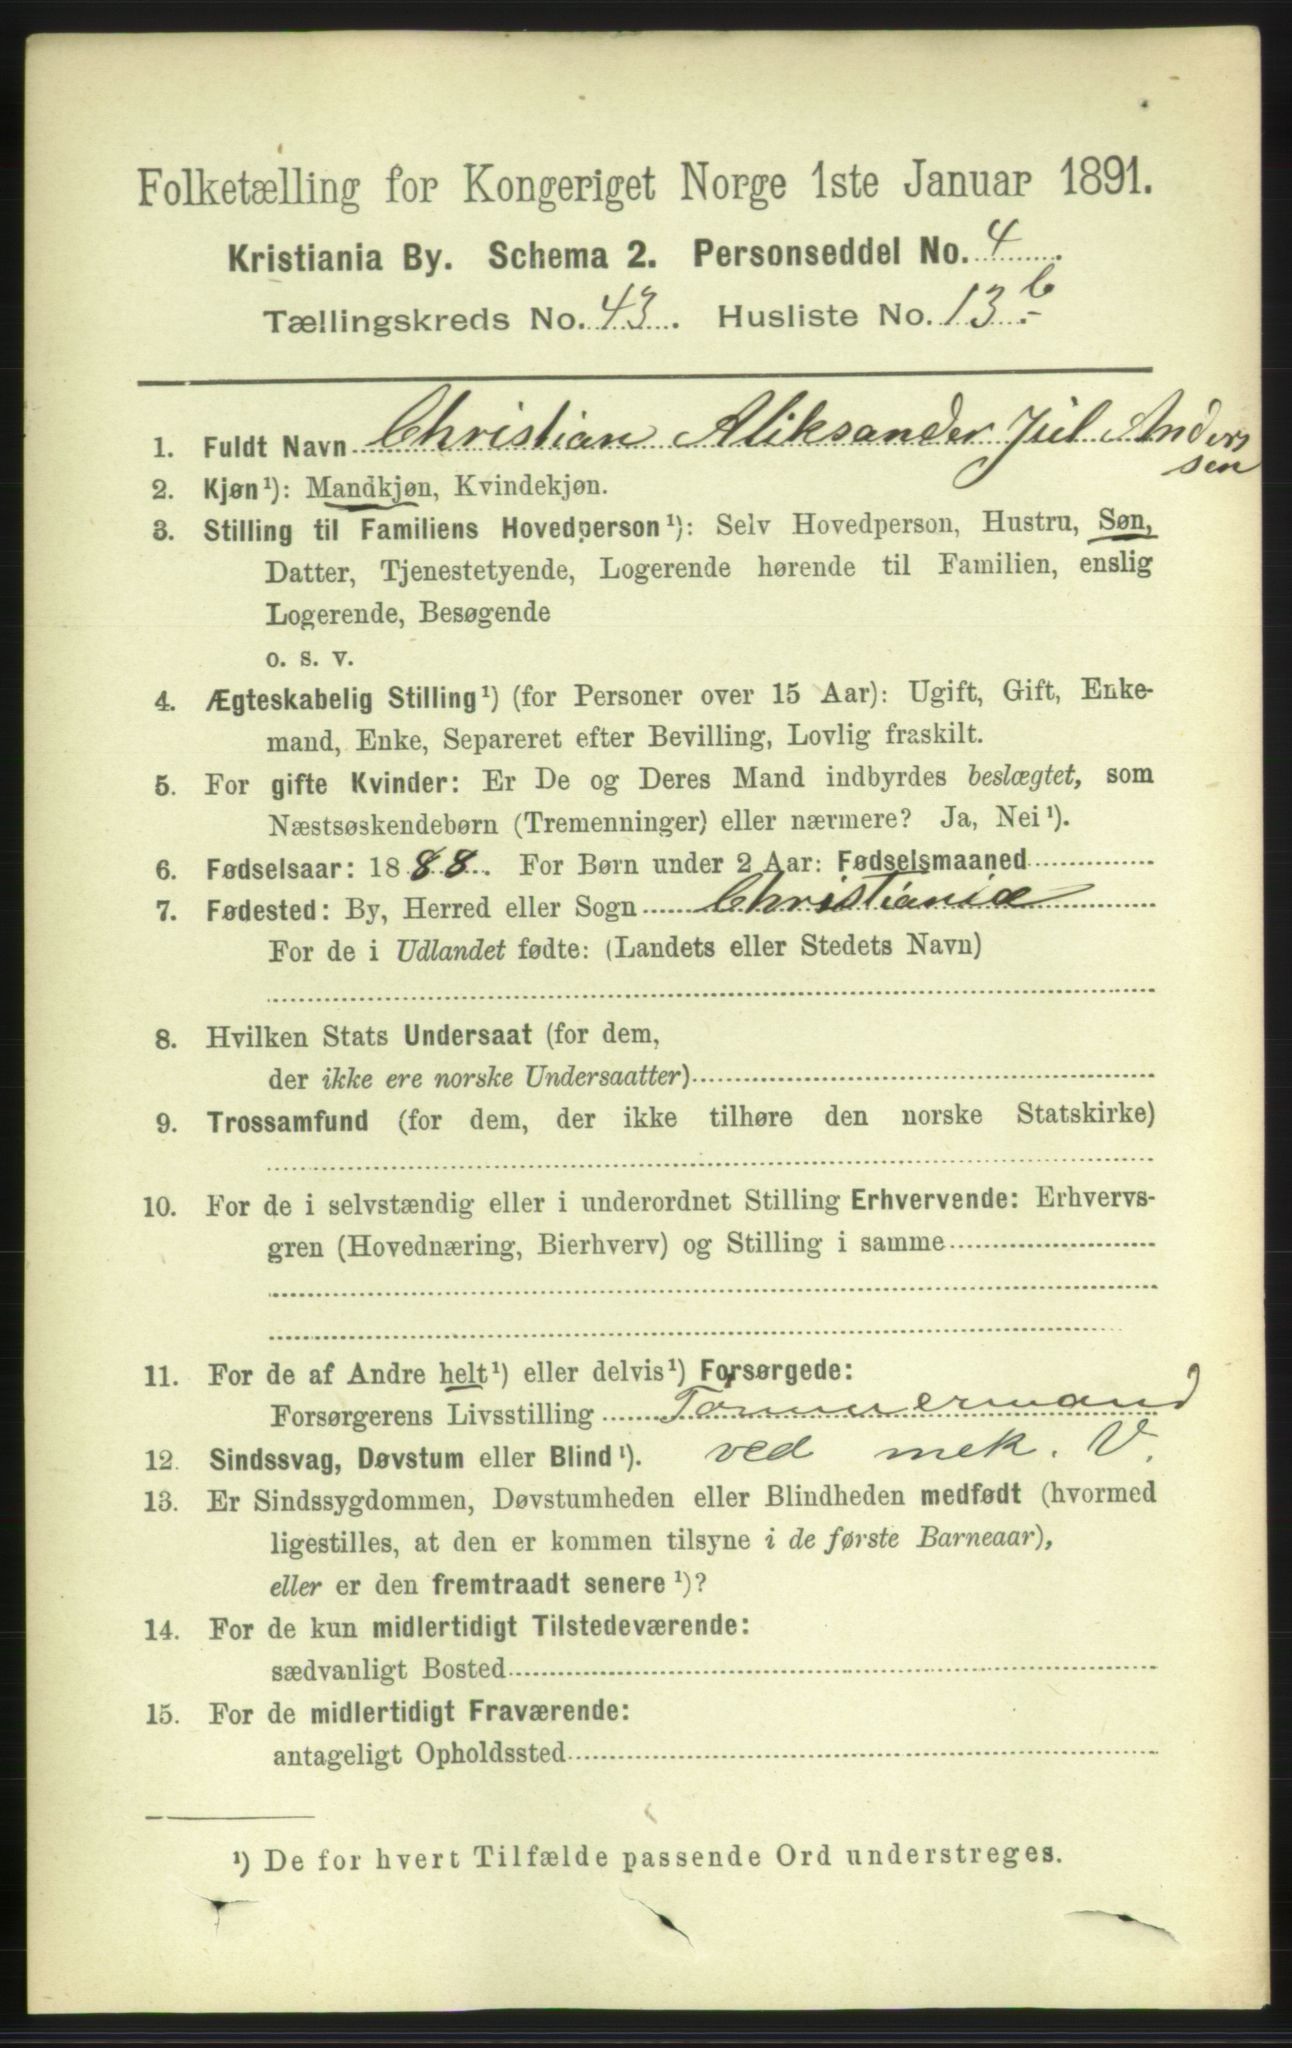 Folketælling for Kongeriget Norge 1ste Januar 1891.
Kristiania By. Schema 2. Personseddel No. 4.
Tællingskreds No. 43. Husliste No. 13 b.-
1. Fuldt Navn Christian Aliksander Juel Anders
sen
2. Kjøn¹): Mandkjøn, Kvindekjøn.
3. Stilling til Familiens Hovedperson¹): Selv Hovedperson, Hustru, Søn,
Datter, Tjenestetyende, Logerende hørende til Familien, enslig
Logerende, Besøgende
o. s. v.
4. Ægteskabelig Stilling¹) (for Personer over 15 Aar): Ugift, Gift, Enke-
mand, Enke, Separeret efter Bevilling, Lovlig fraskilt.
5. For gifte Kvinder: Er De og Deres Mand indbyrdes beslægtet, som
Næstsøskendebørn (Tremenninger) eller nærmere? Ja, Nei¹).
6. Fødselsaar: 1888. For Børn under 2 Aar: Fødselsmaaned
7. Fødested: By, Herred eller Sogn Christiania
For de i Udlandet fødte: (Landets eller Stedets Navn)
8. Hvilken Stats Undersaat (for dem,
der ikke ere norske Undersaatter)
9. Trossamfund (for dem, der ikke tilhøre den norske Statskirke)
10. For de i selvstændig eller i underordnet Stilling Erhvervende: Erhvervs-
gren (Hovednæring, Bierhverv) og Stilling i samme
11. For de af Andre helt¹) eller delvis¹) Forsørgede:
Forsørgerens Livsstilling Tømmermand
12. Sindssvag, Døvstum eller Blind¹). ved mek. V.
13. Er Sindssygdommen, Døvstumheden eller Blindheden medfødt (hvormed
ligestilles, at den er kommen tilsyne i de første Barneaar),
eller er den fremtraadt senere¹)?
14. For de kun midlertidigt Tilstedeværende:
sædvanligt Bosted
15. For de midlertidigt Fraværende:
antageligt Opholdssted
¹) De for hvert Tilfælde passende Ord understreges.